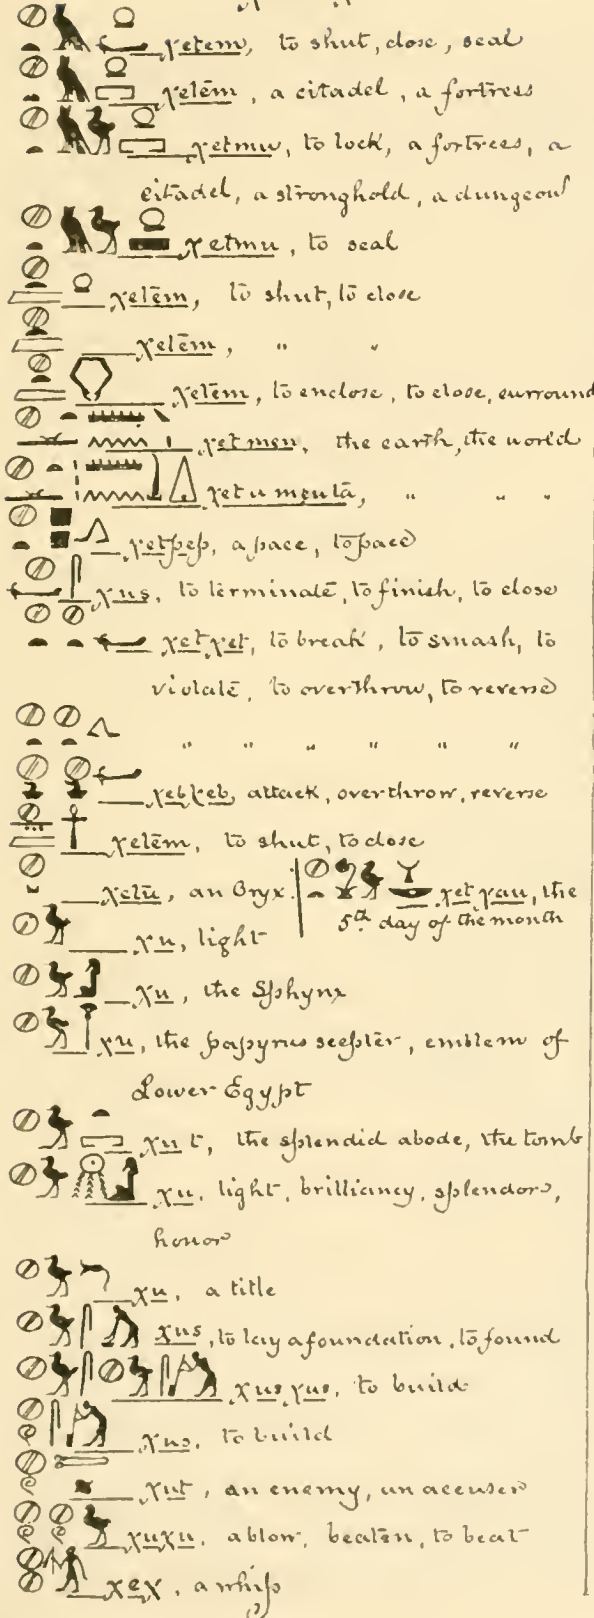 χetem, to shut, close, seal
χetēm, a citadel, a fortress
χetmu, to lock, a fortrees, a
citadel, a stronghold, a dungeon
χetmu, to seal
χetēm, to shut, to close
χetēm, " "
χetēm, to enclose, to close, surround
χet men, the earth, the world
χet u menta, " " "
χetpep, a pace, to pace
χus, to terminate, to finish, to close
χet χet, to break, to smash, to
violate, to overthrow, to reverse
" " " " " "
χebχeb, attack, overthrow, reverse
χetēm, to shut, to close
χetu, an Oryx. χet χau, the
5th day of the month
χu, light
χu, the Sphynx
χu, the papyrus scepter, emblem of
Lower Egypt
χu t, the splendid abode, the tomb
χu, light, brilliancy, splendor,
honor
χu, a title
χus, to lay a foundation, to found
χus χus, to build
χus, to build
χut, an enemy, an accuser
χuχu, a blow, beaten, to beat
χeχ, a whip